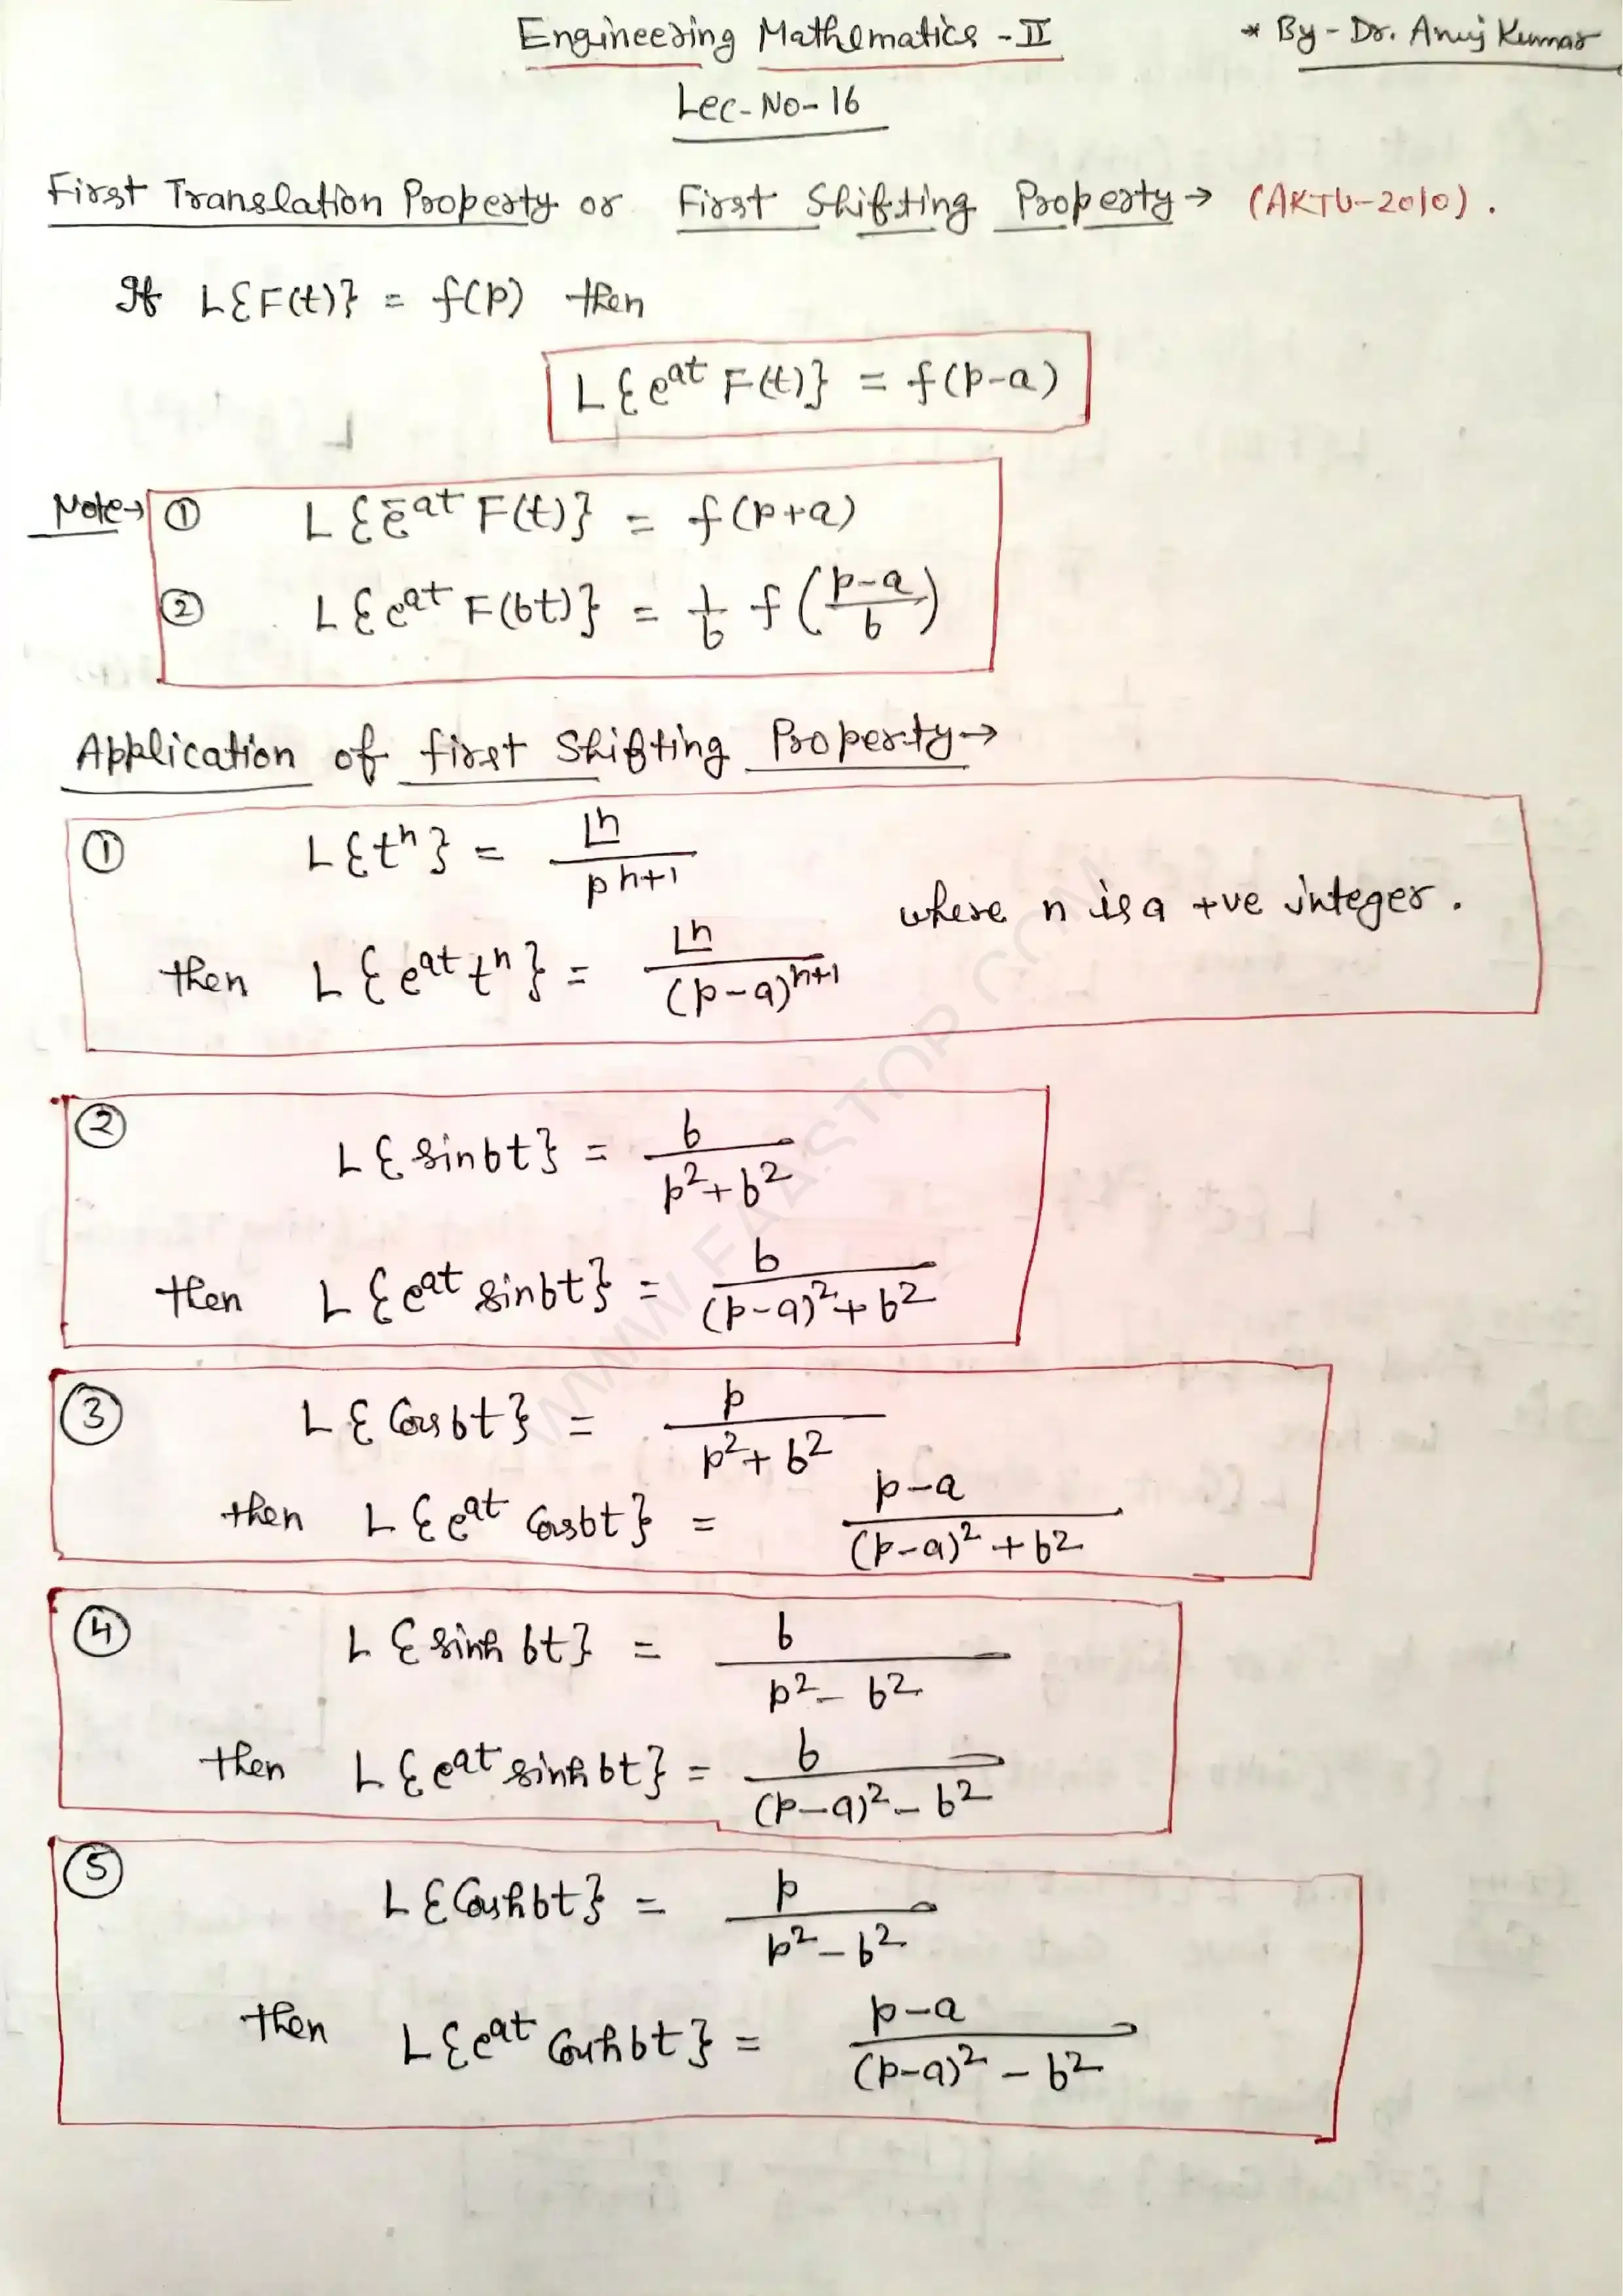 Engineering Mathematics - II
* By - Dr. Anuj Kumar
Lec-No-16
First Translation Property or First Shifting Property → (AKTU-2010).
If L{F(t)} = f(p) then
L{e^{at} F(t)} = f(p-a)
Note → ① L{e^{-at} F(t)} = f(p+a)
② L{e^{at} F(bt)} = 1/b f((p-a)/b)
Application of first Shifting Property →
① L{t^n} = ⌊n / p^{n+1}
where n is a +ve integer.
then L{e^{at} t^n} = ⌊n / (p-a)^{n+1}
② L{sinbt} = b / (p²+b²)
then L{e^{at} sinbt} = b / ((p-a)²+b²)
③ L{Cosbt} = p / (p²+b²)
then L{e^{at} Cosbt} = (p-a) / ((p-a)²+b²)
④ L{sinh bt} = b / (p²-b²)
then L{e^{at} sinhbt} = b / ((p-a)²-b²)
⑤ L{Coshbt} = p / (p²-b²)
then L{e^{at} Coshbt} = (p-a) / ((p-a)²-b²)
WWW.FAASTOP.COM